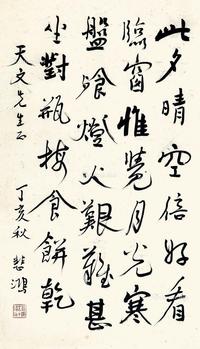 此夕晴空信好看
臨窗惟覺月光寒
盤飧燈火艱難甚
坐對瓶梅食餅乾
天文先生正
丁亥秋 悲鴻